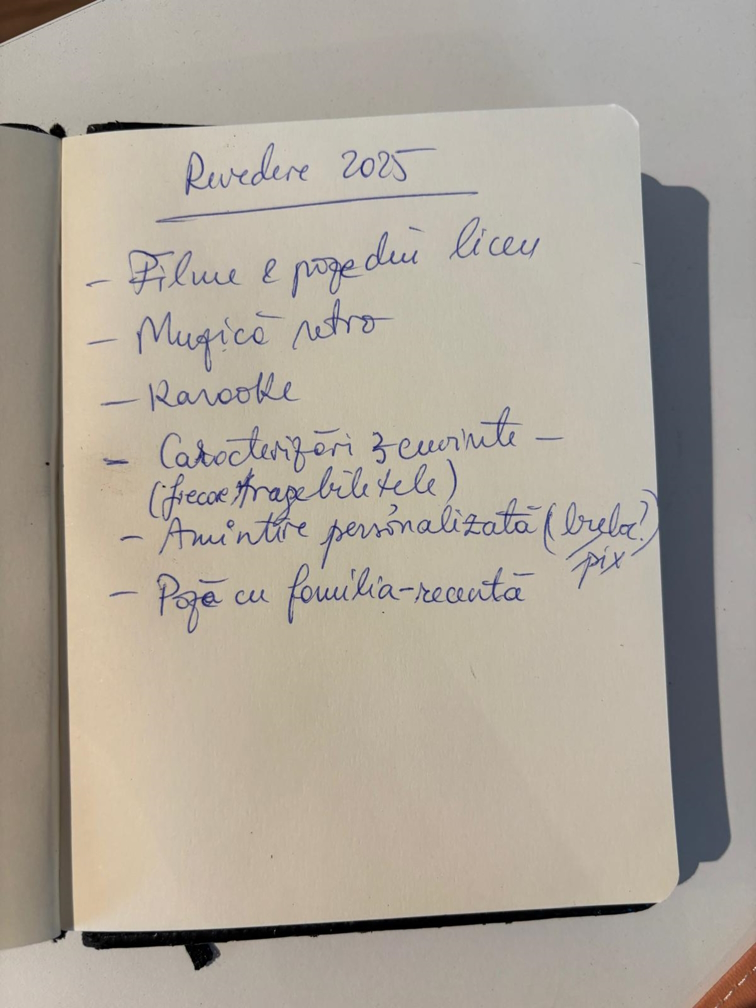 Revedere 2025
- Filme & poze din liceu
- Muzică retro
- Karaoke
- Caracterizări 3 cuvinte -
(fiecare trage biletele)
- Amintire personalizată (brelo?)
pix
- Poză cu familia - recentă